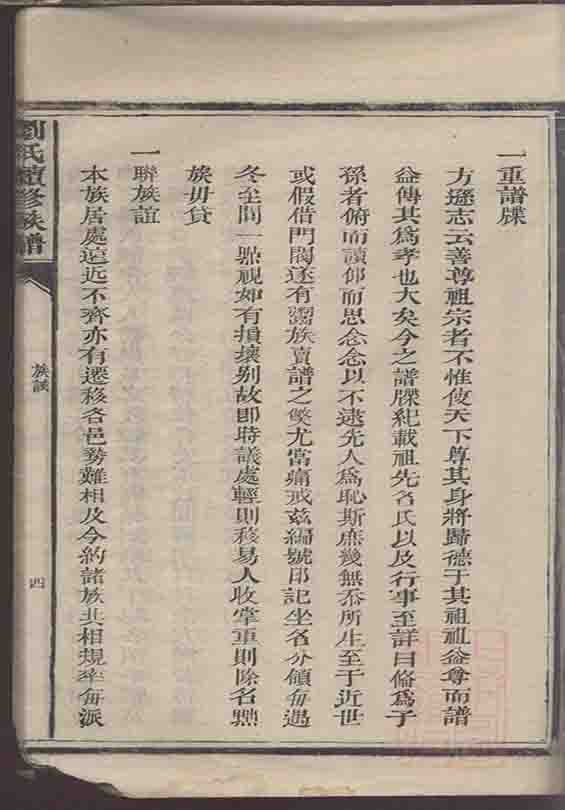 一重譜牒
方遜志云善尊祖宗者不惟使天下尊其身將歸德于其祖祖益尊而譜
益傳其爲孝也大矣今之譜牒紀載祖先名氏以及行事至詳曰脩爲子
孫者俯而讀仰而思念念以不逮先人爲恥斯庶幾無忝所生至于近世
或假借門閥遂有鬻族賣譜之獘尤當痛戒茲編號印記坐名分領每遇
冬至間一㬎視如有損壞别故即時議處輕則移易人收掌重則除名㬎
族毋貸
一聯族誼
本族居處遠近不齊亦有遷移各邑勢難相及今約諸族共相規率每派
劉氏續修族譜
族談
四